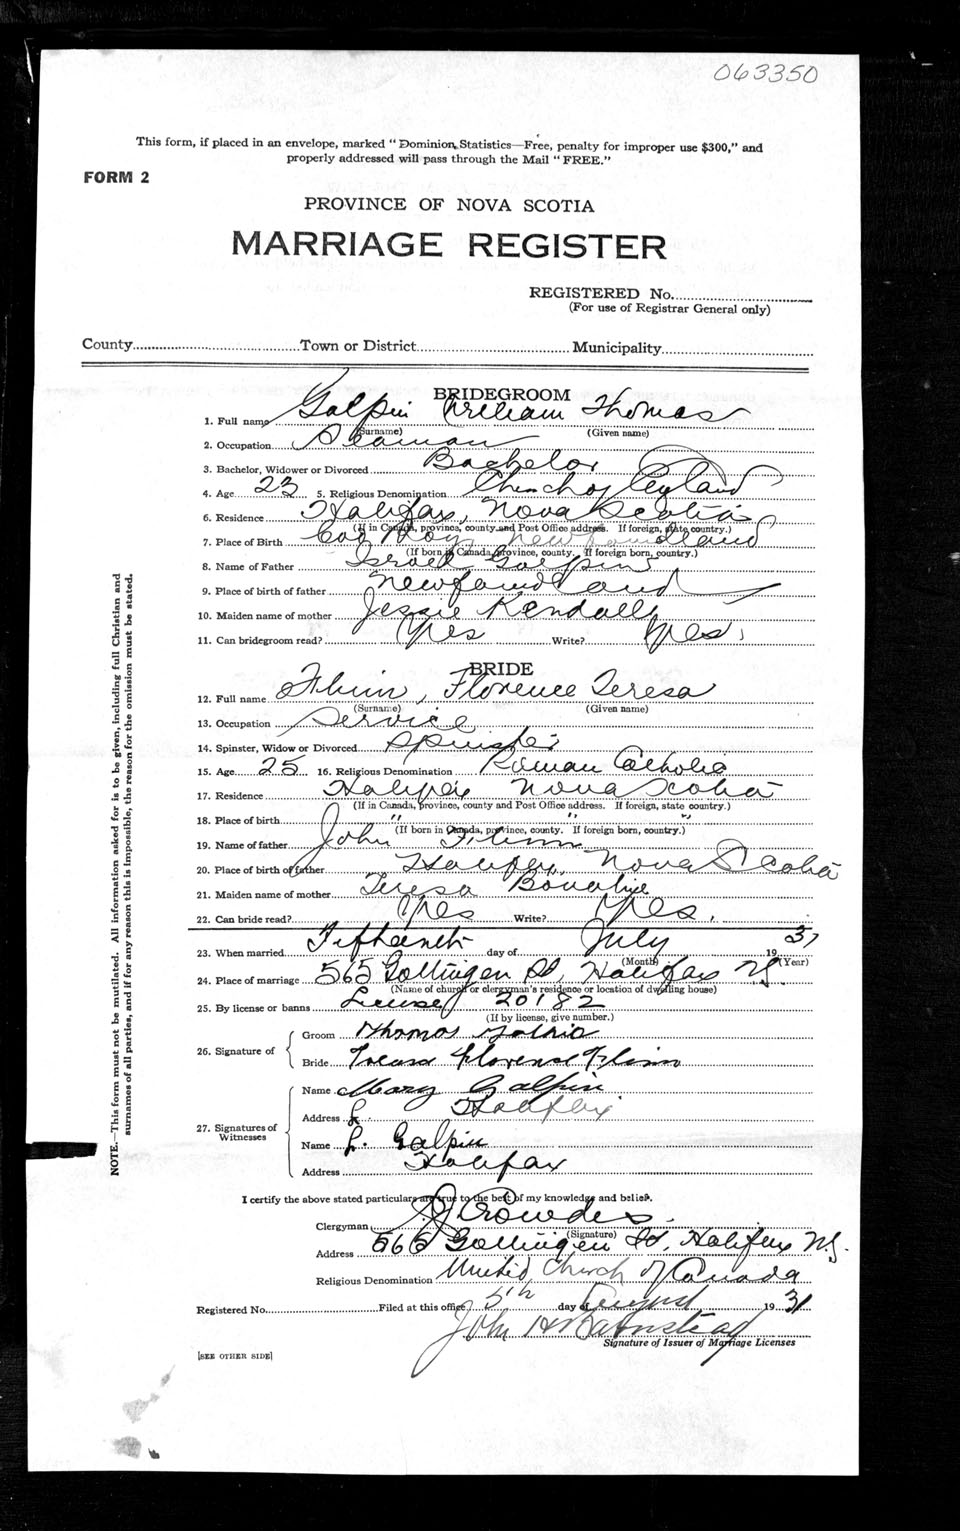 063350
This form, if placed in an envelope, marked "Dominion Statistics—Free, penalty for improper use $300," and
properly addressed will pass through the Mail "FREE."
FORM 2
PROVINCE OF NOVA SCOTIA
MARRIAGE REGISTER
REGISTERED No.
(For use of Registrar General only)
County Town or District Municipality
BRIDEGROOM
1. Full name Galpin William Thomas
(Surname) (Given name)
2. Occupation Seaman
3. Bachelor, Widower or Divorced Bachelor
4. Age 23 5. Religious Denomination Church of England
6. Residence Halifax, Nova Scotia
(If in Canada, province, county and Post Office address. If foreign, state country.)
7. Place of Birth Cod Roy Newfoundland
(If born in Canada, province, county. If foreign born, country.)
8. Name of Father Israel Galpin
9. Place of birth of father Newfoundland
10. Maiden name of mother Jessie Kendall
11. Can bridegroom read? Yes Write? Yes
BRIDE
12. Full name Flinn, Florence Teresa
(Surname) (Given name)
13. Occupation Service
14. Spinster, Widow or Divorced Spinster
15. Age 25 16. Religious Denomination Roman Catholic
17. Residence Halifax Nova Scotia
(If in Canada, province, county and Post Office address. If foreign, state country.)
18. Place of birth " " "
(If born in Canada, province, county. If foreign born, country.)
19. Name of father John Flinn
20. Place of birth of father Halifax, Nova Scotia
21. Maiden name of mother Teresa
22. Can bride read? Yes Write? Yes.
23. When married Fifteenth day of July 19 31
(Month) (Year)
24. Place of marriage 565 Gottingen St, Halifax N.S.
(Name of church or clergyman's residence or location of dwelling house)
25. By license or banns License 20182
(If by license, give number.)
26. Signature of
Groom Thomas
Bride Florence Flinn
27. Signatures of
Witnesses
Name Mary Galpin
Address Halifax
Name L. Galpin
Address Halifax
I certify the above stated particulars are true to the best of my knowledge and belief.
Clergyman Crowdis
(Signature)
Address 565 Gottingen St, Halifax N.S.
Religious Denomination United Church of Canada
Registered No. Filed at this office 5th day of August 19 31
John H Barnstead
Signature of Issuer of Marriage Licenses
[SEE OTHER SIDE]
NOTE.—This form must not be mutilated. All information asked for is to be given, including full Christian and
surnames of all parties, and if for any reason this is impossible, the reason for the omission must be stated.